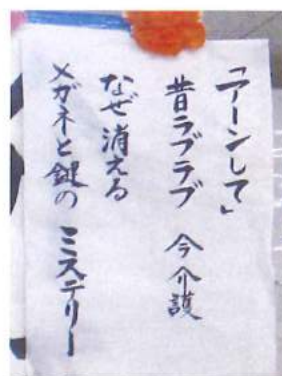 「アーンして」
昔ラブラブ 今介護
なぜ消える
メガネと鍵の ミステリー